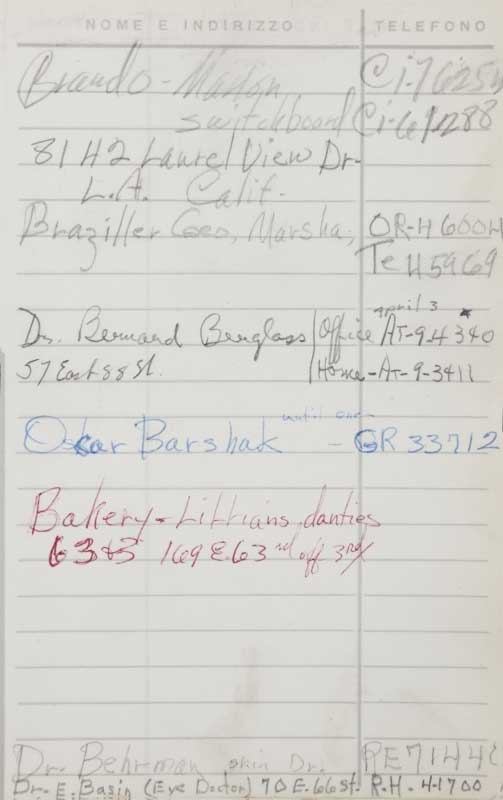 NOME E INDIRIZZO TELEFONO
Brando - Marlon Ci-7625
switchboard Ci-61288
8142 Laurel View Dr.
L.A. Calif.
Braziller Geo, Marsha, OR-4600
Te 45969
april 3
Dr. Bernard Berglass Office AT-9-4340
57 East 88 St. Home-AT-9-3411
until one
Oscar Barshak - GR 33712
Bakery - Lillians danties
169 E. 63rd off 3rd
Dr. Behrman skin Dr. RE7144
Dr. E. Basin (Eye Doctor) 70 E. 66 St. R.H. 4-1700